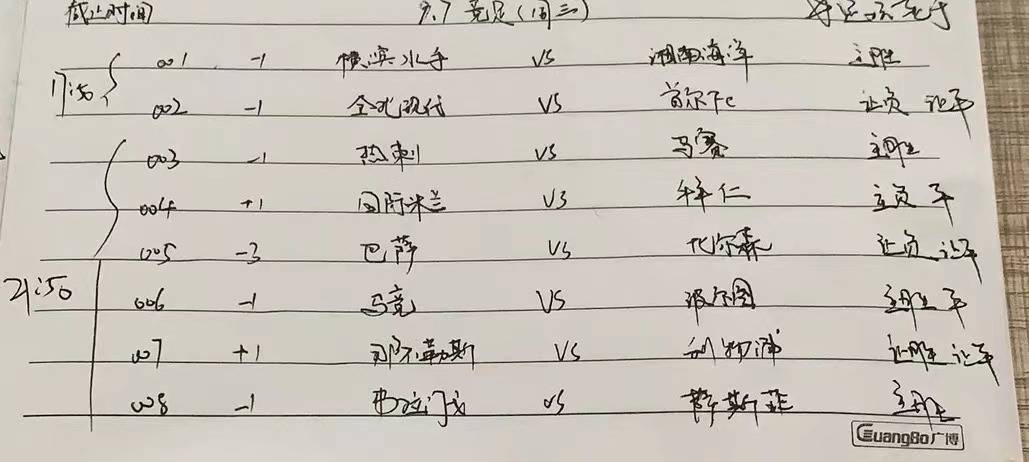 截止时间 9.7 竞足(周三)
001 -1 横滨水手 VS 湘南海洋 主胜
17:50
002 -1 全北现代 VS 首尔Fc 让负 让平
003 -1 热刺 VS 马赛 主胜
004 +1 国际米兰 VS 拜仁 主负 平
005 -3 巴萨 VS 比尔森 让负 让平
21:50
006 -1 马竞 VS 波尔图 主胜 平
007 +1 那不勒斯 VS 利物浦 让胜 让平
008 -1 布拉门戈 VS 萨斯菲 主胜
GuangBo广博